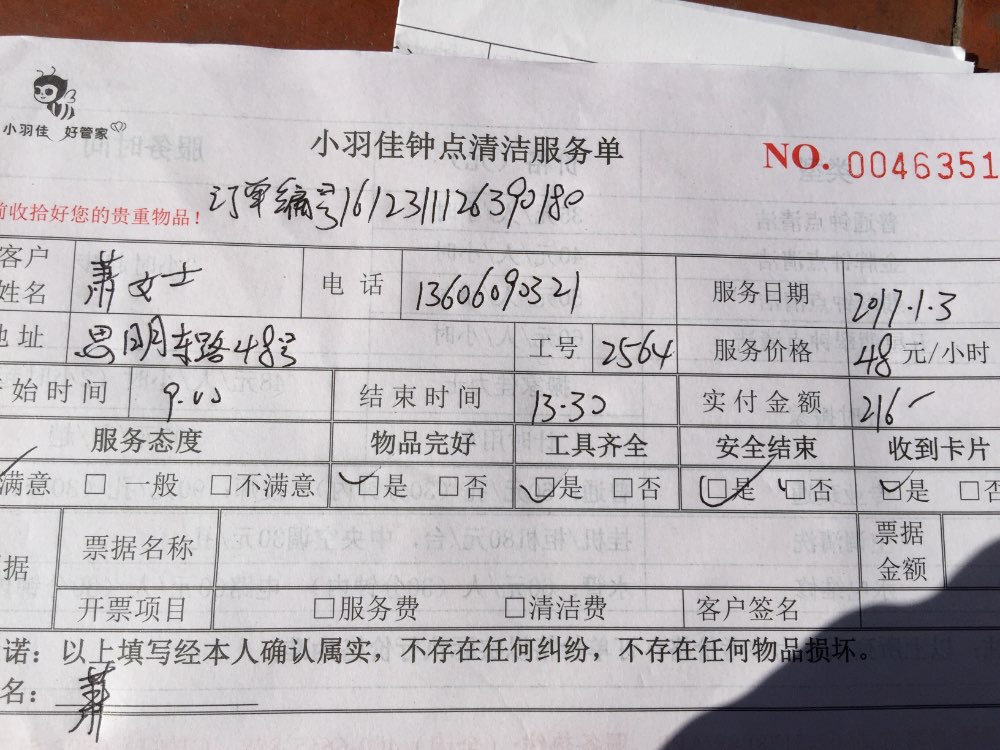 小羽佳 好管家
小羽佳钟点清洁服务单
NO. 0046351
订单编号1612311126390180
前收拾好您的贵重物品！
客户姓名 萧女士 电话 13606090321 服务日期 2017.1.3
地址 思明东路48号 工号 2564 服务价格 48元/小时
开始时间 9.00 结束时间 13.30 实付金额 216
服务态度 物品完好 工具齐全 安全结束 收到卡片
满意 □ 一般 □不满意 □是 □否 □是 □否 □是 □否 □是 □否
据 票据名称 票据金额
开票项目 □服务费 □清洁费 客户签名
诺：以上填写经本人确认属实，不存在任何纠纷，不存在任何物品损坏。
名：萧